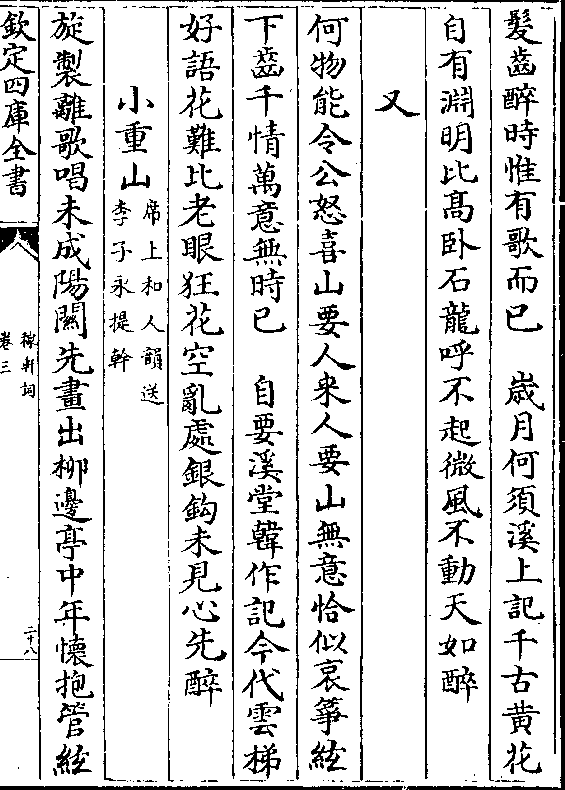 髮齒醉時惟有歌而已　歲月何須溪上記千古黄花
自有淵明比髙卧石龍呼不起微風不動天如醉
又
何物能令公怒喜山要人来人要山無意恰似哀筝絃
下齒千情萬意無時已　自要溪堂韓作記今代雲梯
好語花難比老眼狂花空亂處銀鈎未見心先醉
小重山席上和人韻送
李子永提幹
旋製離歌唱未成陽闗先畫出栁邊亭中年懷抱管絃
欽定四庫全書
稼軒詞
卷三
二十八